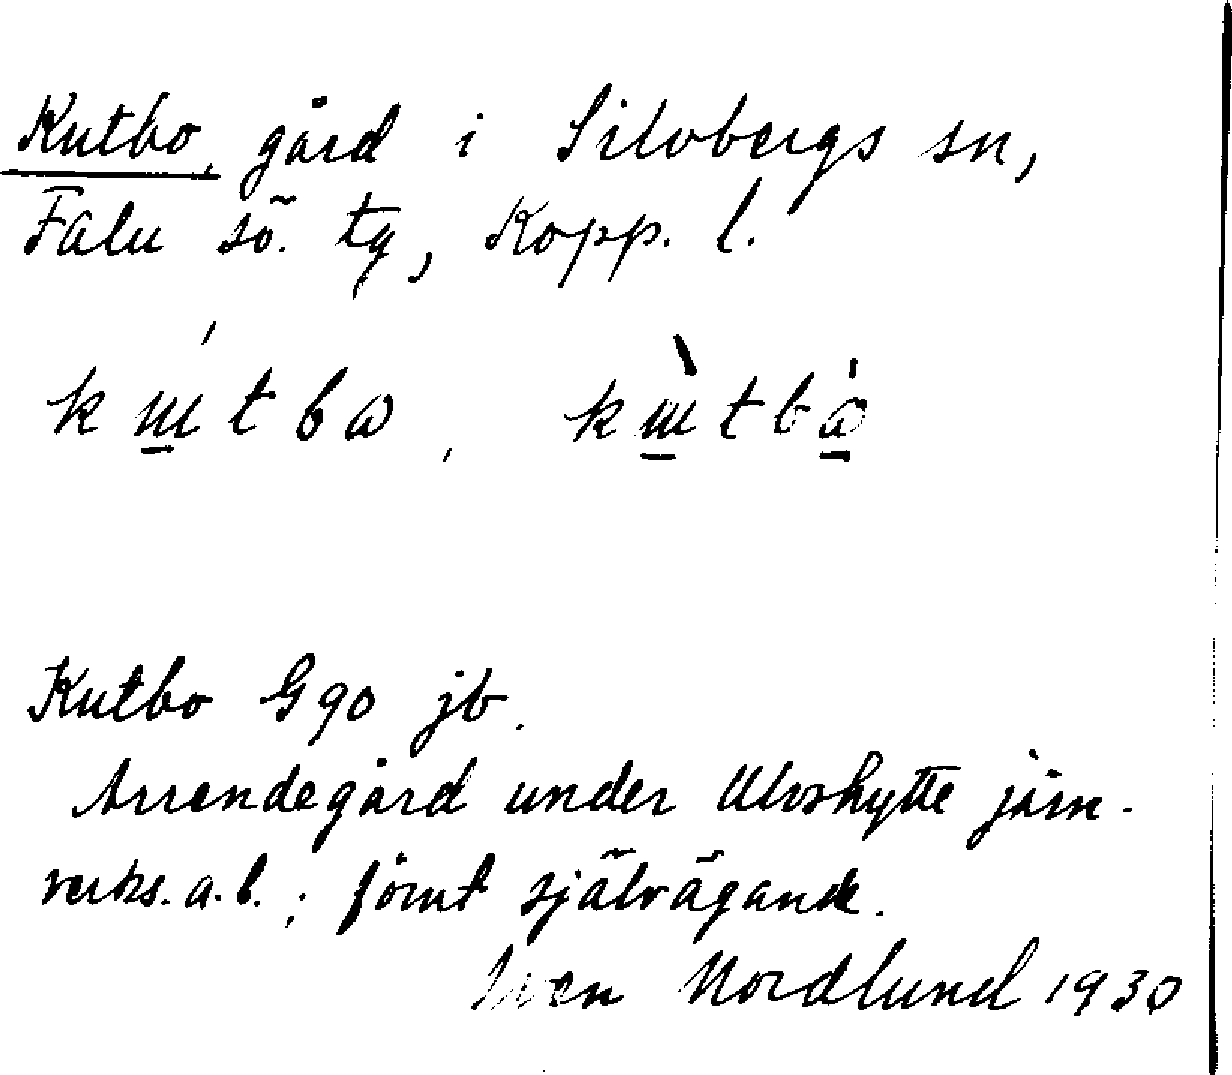 Kutbo, gård i Silvbergs sn,
Falu sö. tg, Kopp. l.
kɯ́tbɷ, kɯ̀tbɷ̀
Kutbo G 90 jb.
Arrendegård under Ulvshytte järn-
verks. a.b.; förut självägande.
Sven Nordlund 1930